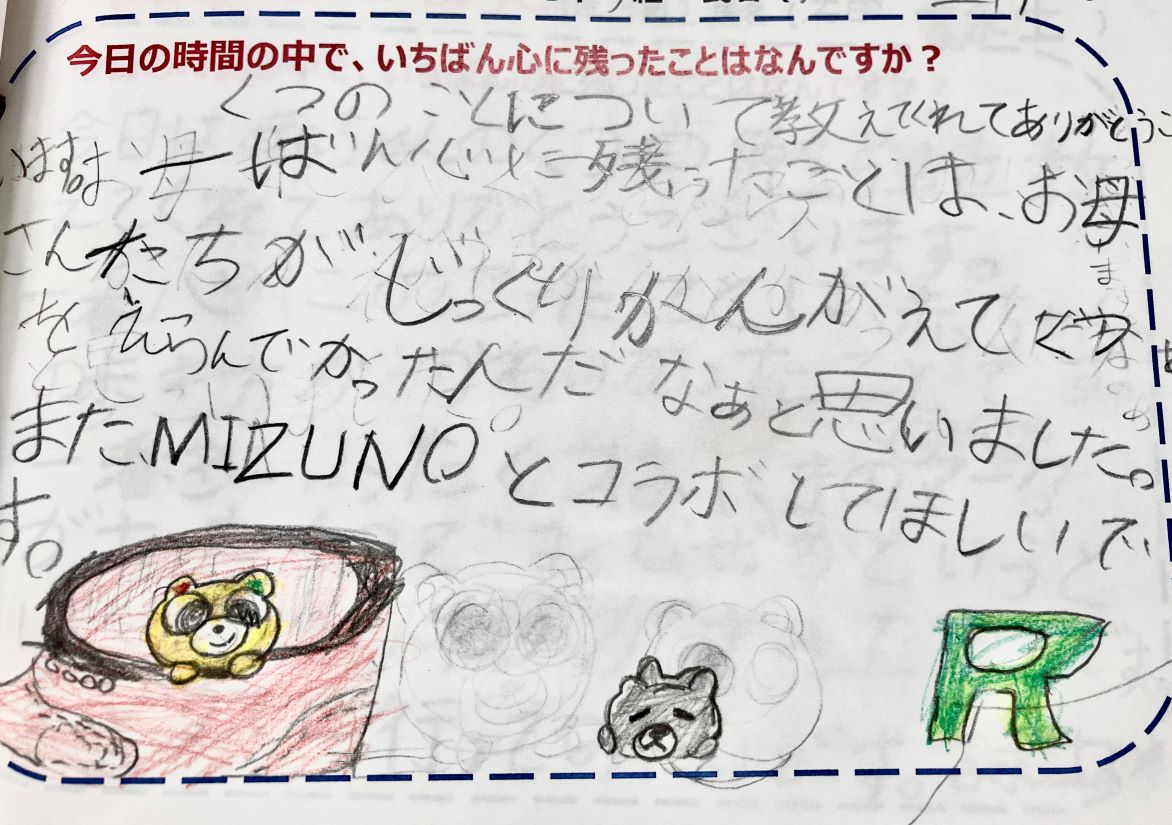 今日の時間の中で、いちばん心に残ったことはなんですか？
くつのことについて教えてくれてありがとうご
ばん心に残ったことは、お母
さんたちがじっくりかんがえて
をえらんでかったんだなぁと思いました。
またMIZUNOとコラボしてほしいで
す。
R